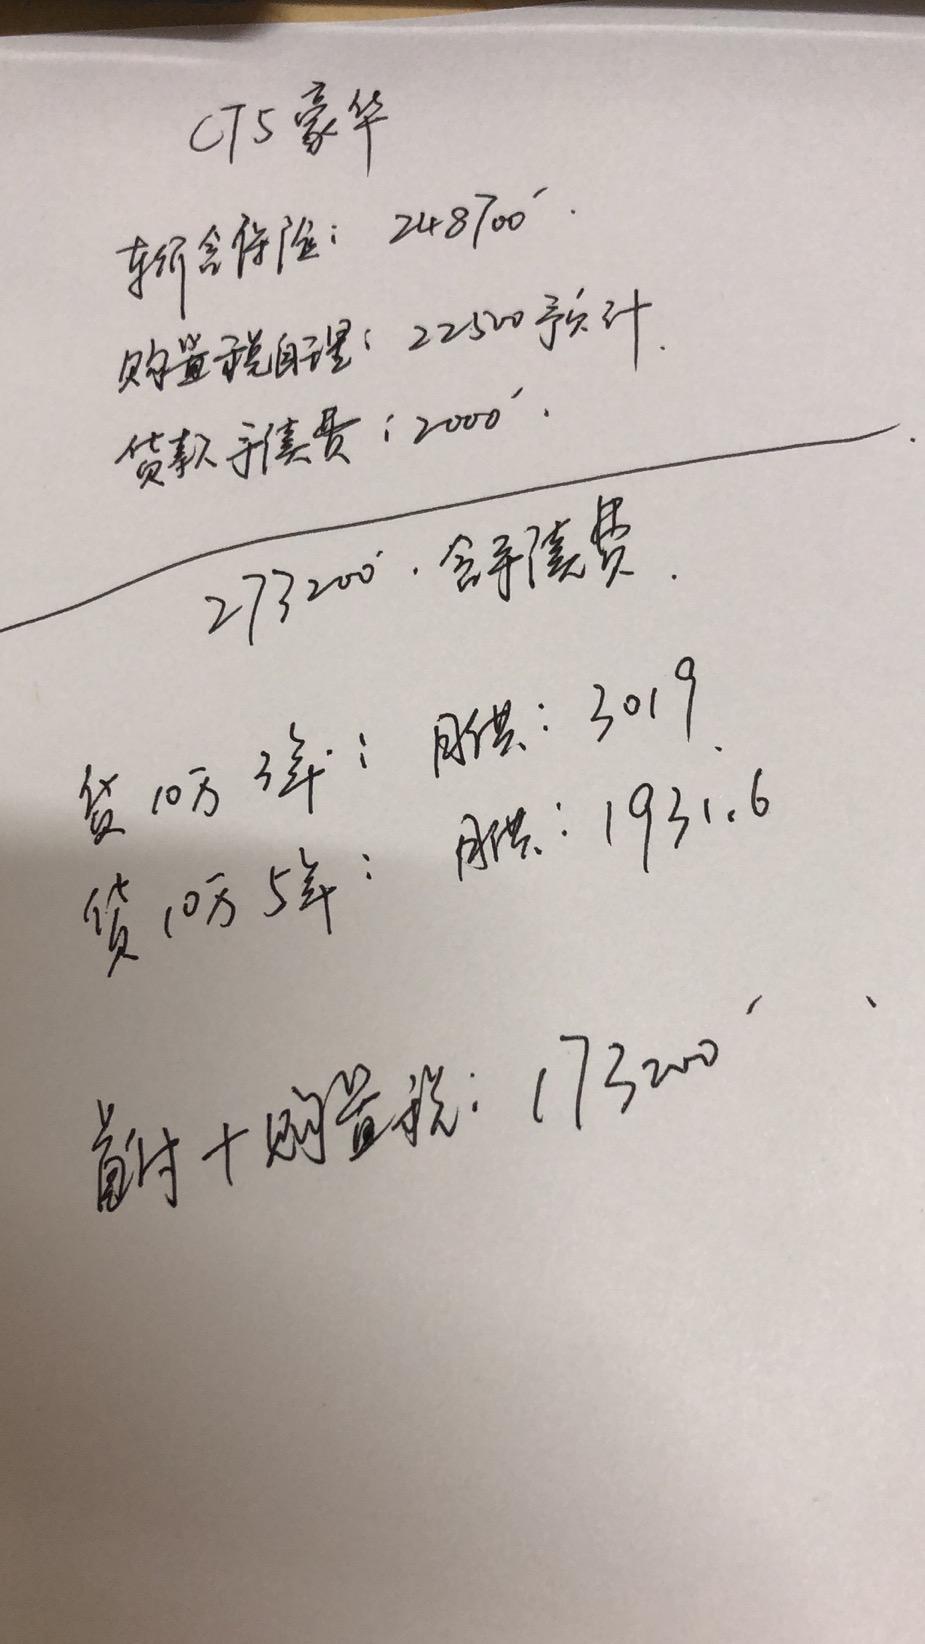 CT5豪华
车价含保险：248700
购置税自理：22500预计.
贷款手续费：2000.
273200.含手续费.
贷10万3年：月供：3019.
贷10万5年：月供：1931.6
首付+购置税：173200